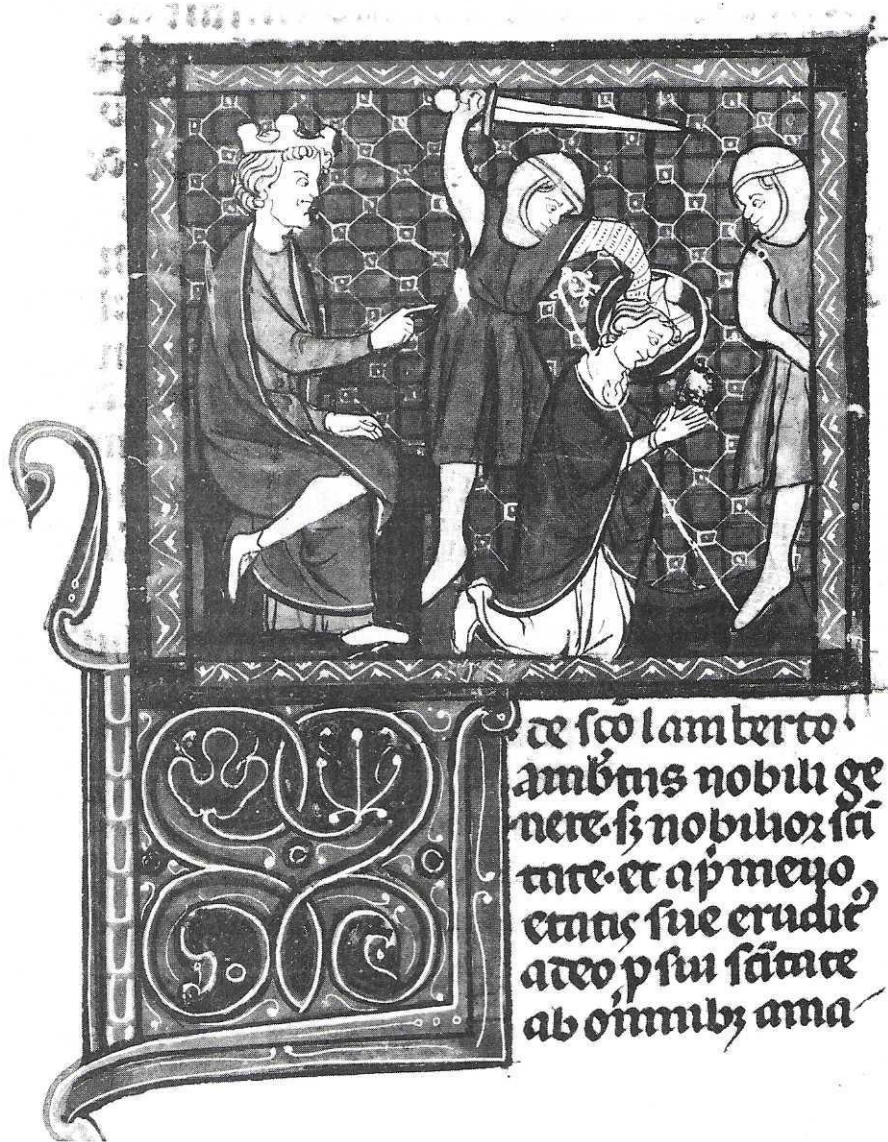 de sc̄o lamberto·
Lamb̄tus nobili ge
nere· sꝫ nobilior sc̄i
tate· et a p̄meuo
etatis sue eruditꝰ
adeo p sui sc̄itate
ab om̄nibꝫ ama